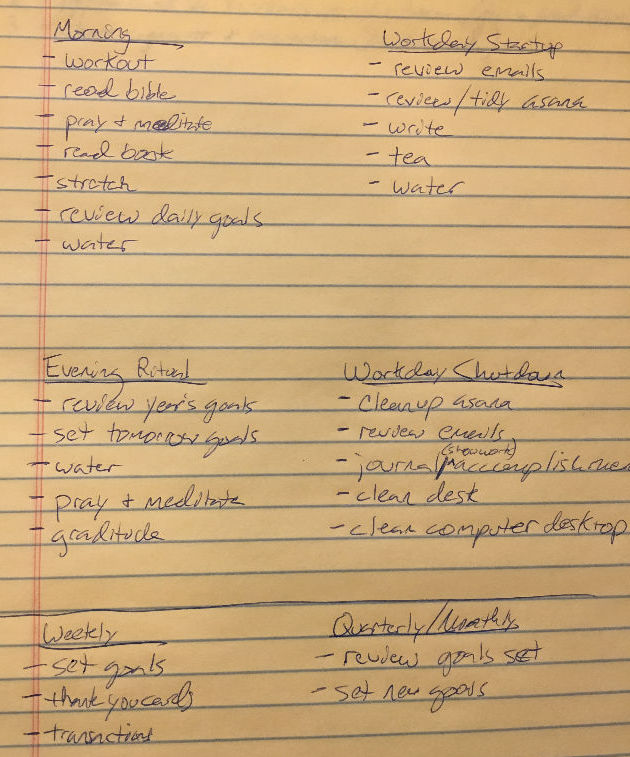 Morning
- workout
- read bible
- pray + meditate
- read book
- stretch
- review daily goals
- water
Workday Startup
- review emails
- review/tidy asana
- write
- tea
- water
Evening Ritual
- review year's goals
- set tomorrow goals
- water
- pray + meditate
- graditude
Workday Shutdown
- cleanup asana
- review emails
(showwork)
- journal accomplishmen
- clean desk
- clean computer desktop
Weekly
- set goals
- thank you cards
- transactions
Quarterly/Monthly
- review goals set
- set new goals